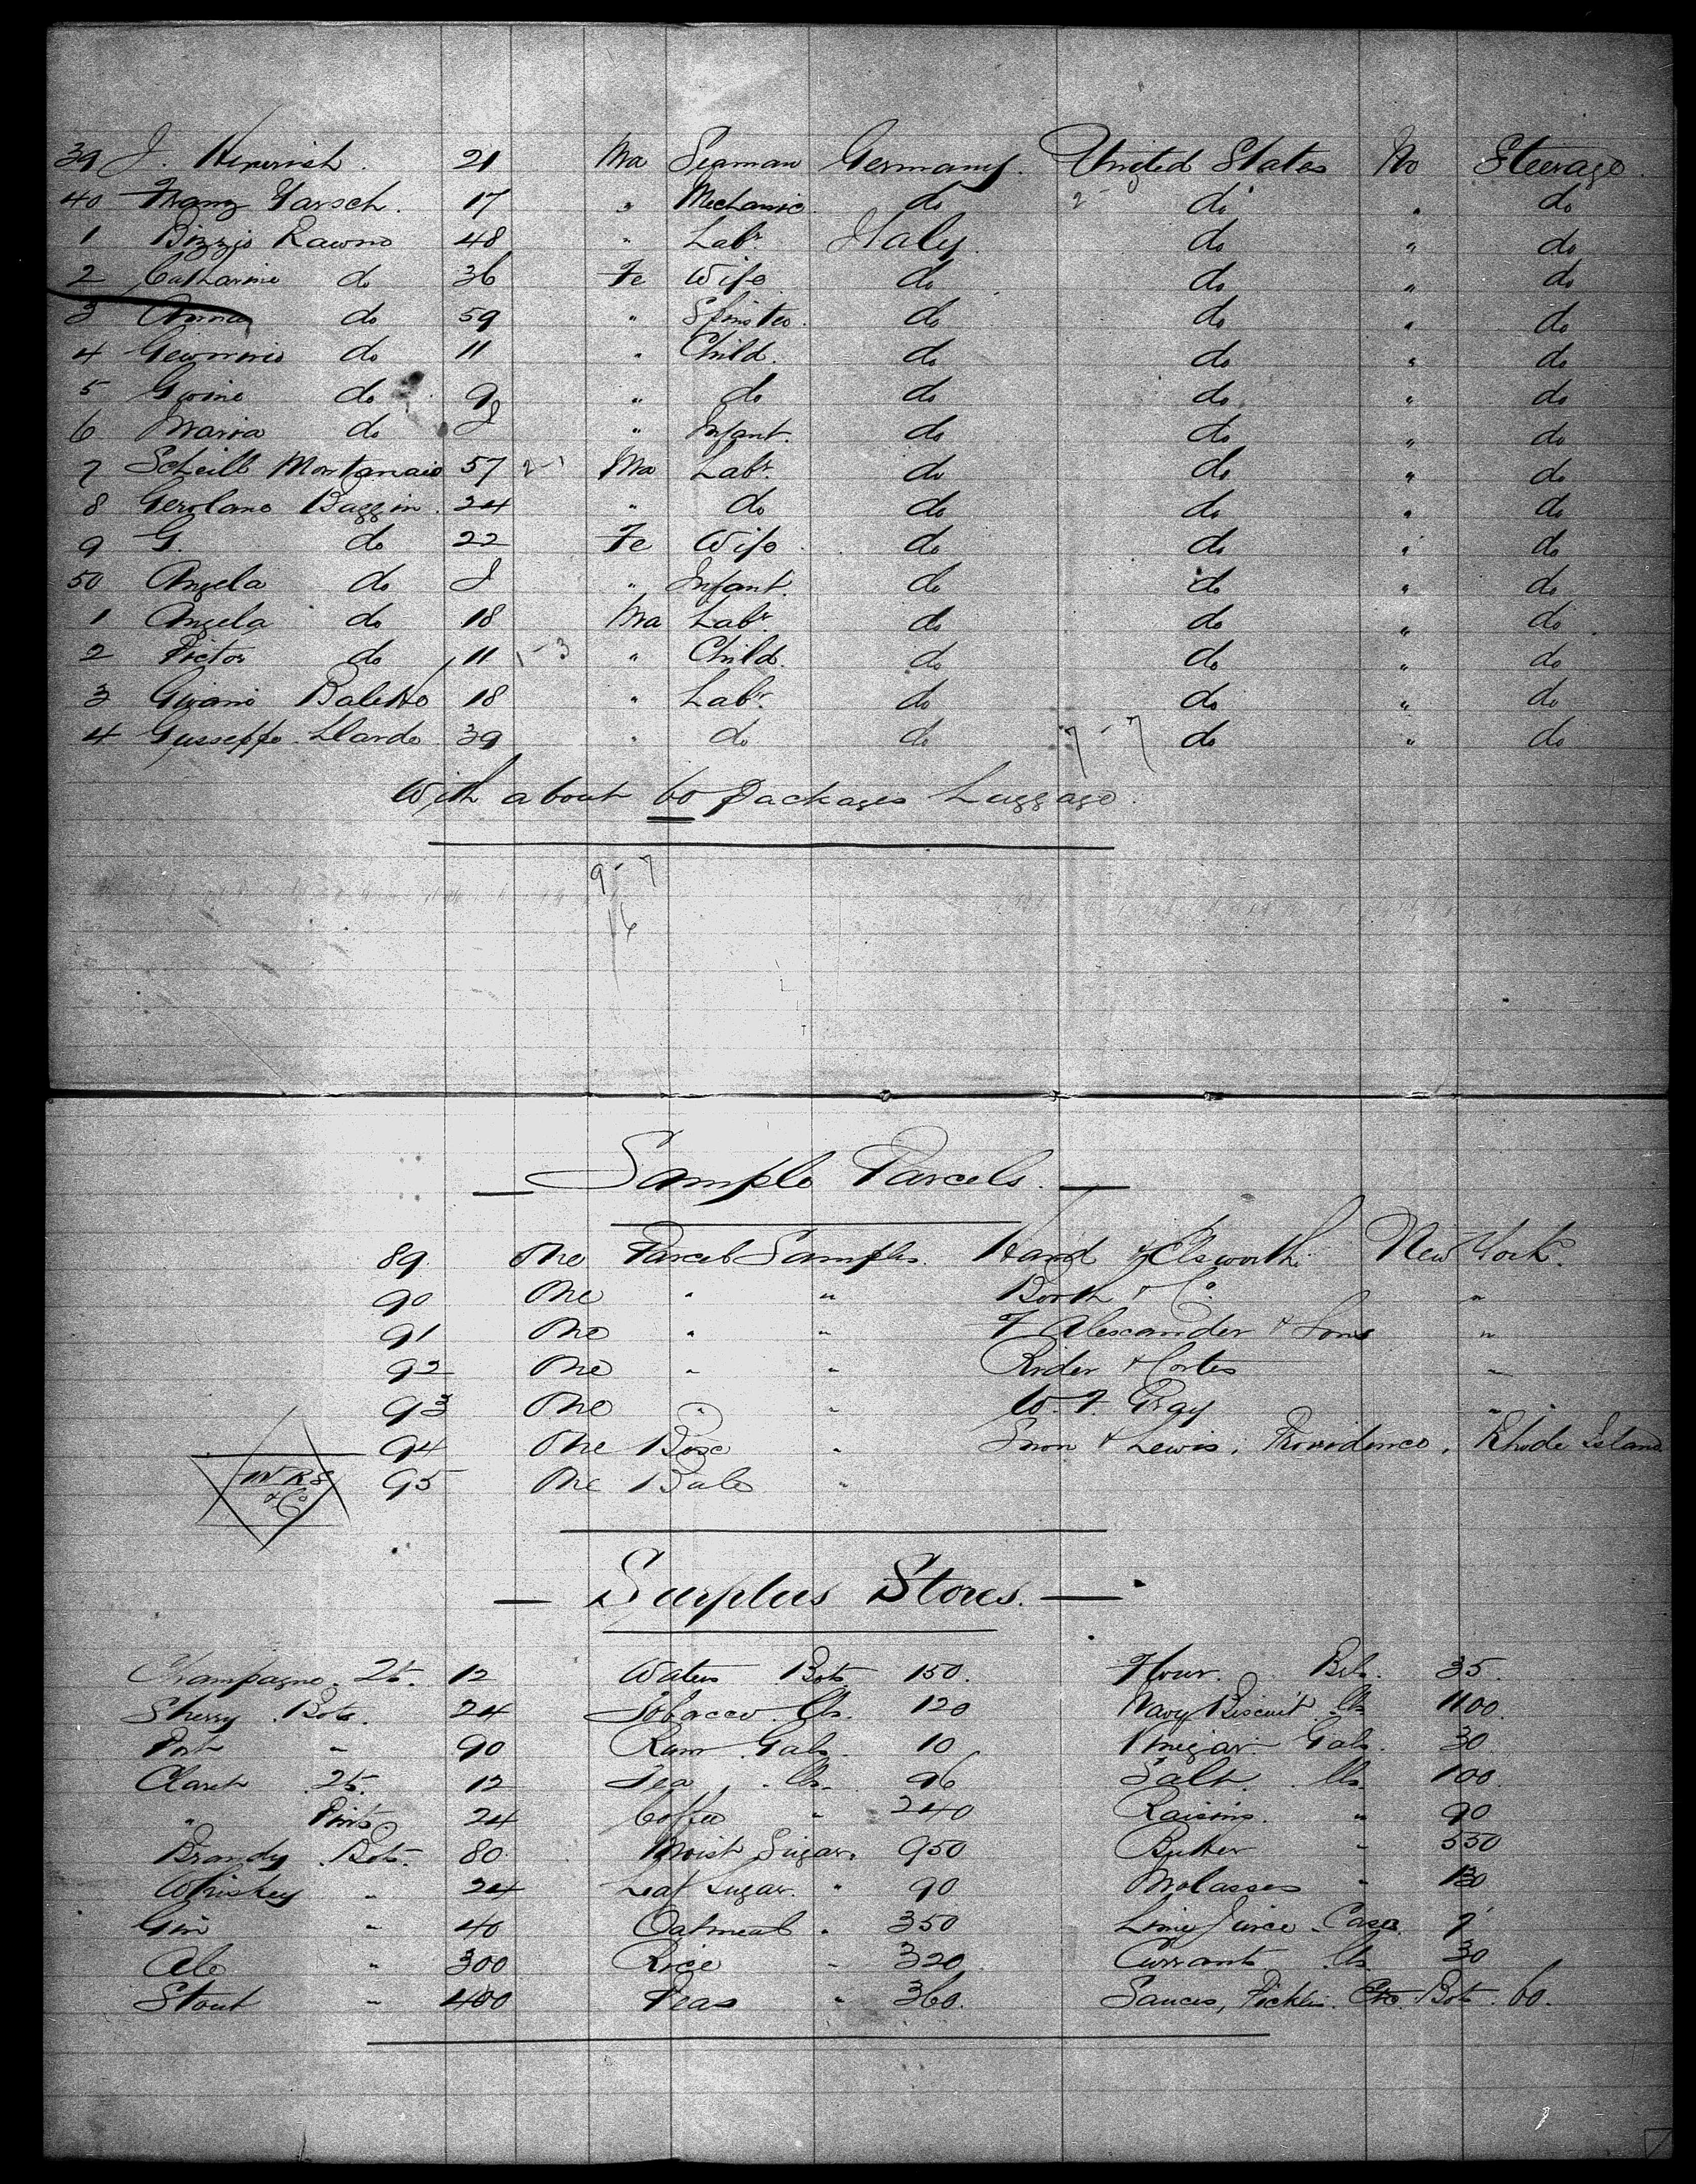 39 J. 21 Ma Seaman Germany. United States No Steerage.
40 Franz Garsch. 17 " Mechanic do 2 - do " do
1 Bizzjo Rawno 48 " Labr. Italy. do " do
2 Catharine do 36 Fe Wife do do " do
3 Anna do 59 " Spinster. do do " do
4 do 11 " Child. do do " do
5 do 9 " do do do " do
6 Maria do " Infant. do do " do
7 Montanaio 57 2-1 Ma Labr. do do " do
8 Gerolano Baggin. 24 " do do do " do
9 G. do 22 Fe Wife do do " do
50 Angela do " Infant. do do " do
1 Angela do 18 Ma Labr. do do " do
2 Victor do 11 1-3 " Child. do do " do
3 Baletto 18 " Labr. do do " do
4 Gusseppe Llardo 39 " do do 7 - 7 do " do
With about 60 Packages Luggage.
9 - 7
16
— Sample Parcels. —
89. One Parcel Samples. Hand & Elsworth. New York.
90 One " " Booth & Co. "
91 One " " F Alexander & Sons "
92 One " " Rider & Cortes "
93 One " " W. F. Gray "
94 One Box " & Lewis, Providence, Rhode Island
W R S & Co 95 One Bale "
— Surplus Stores. —
Champagne. 12 Waters Bots 150. Flour. Bls. 35.
Sherry Bots. 24 Tobacco lbs. 120 Navy Biscuit lbs 1100.
Port " 90 Rum Gals. 10 Vinegar. Gals. 30.
Claret 12 Tea, lbs. 96 Salt. lbs. 100.
" Pints 24 Coffee " 240 Raisins. " 90
Brandy Bots. 80. Moist Sugar. 950 Butter " 550
Whiskey " 24 Loaf Sugar. " 90 Molasses "
Gin " 40 Oatmeal " 350 Lime Juice Cases
Ale " 300 Rice " 320 Currants lbs 30
Stout " 400 Peas " 360. Sauces, Pickles. Etc. Bots. 60.